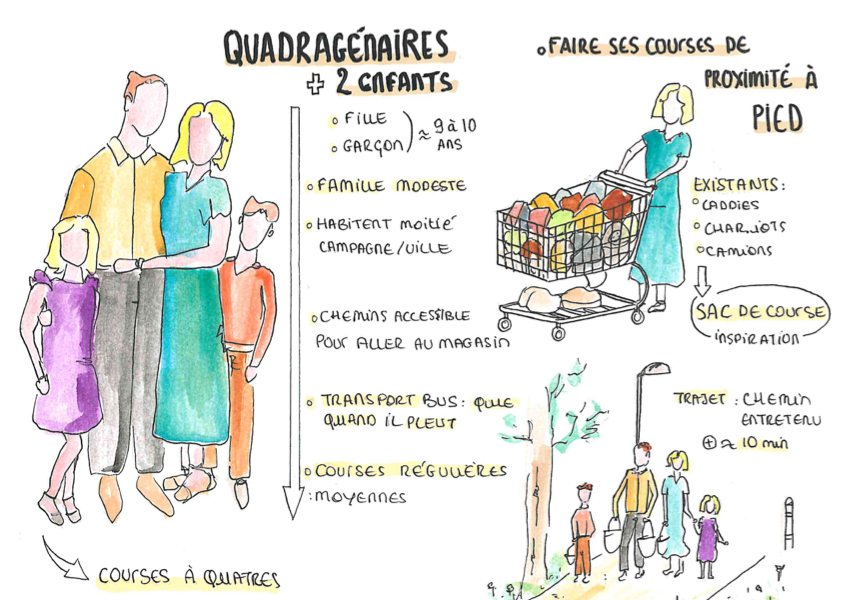 QUADRAGÉNAIRES
+ 2 ENFANTS
FILLE
GARÇON
≈ 9 à 10
ANS
FAMILLE MODESTE
HABITENT MOITIÉ
CAMPAGNE/VILLE
CHEMINS ACCESSIBLE
POUR ALLER AU MAGASIN
TRANSPORT BUS : QUE
QUAND IL PLEUT
COURSES RÉGULIÈRES
: MOYENNES
COURSES À QUATRES
FAIRE SES COURSES DE
PROXIMITÉ À
PIED
EXISTANTS :
CADDIES
CHARIOTS
CAMIONS
SAC DE COURSE
INSPIRATION
TRAJET : CHEMIN
ENTRETENU
+ ≈ 10 min